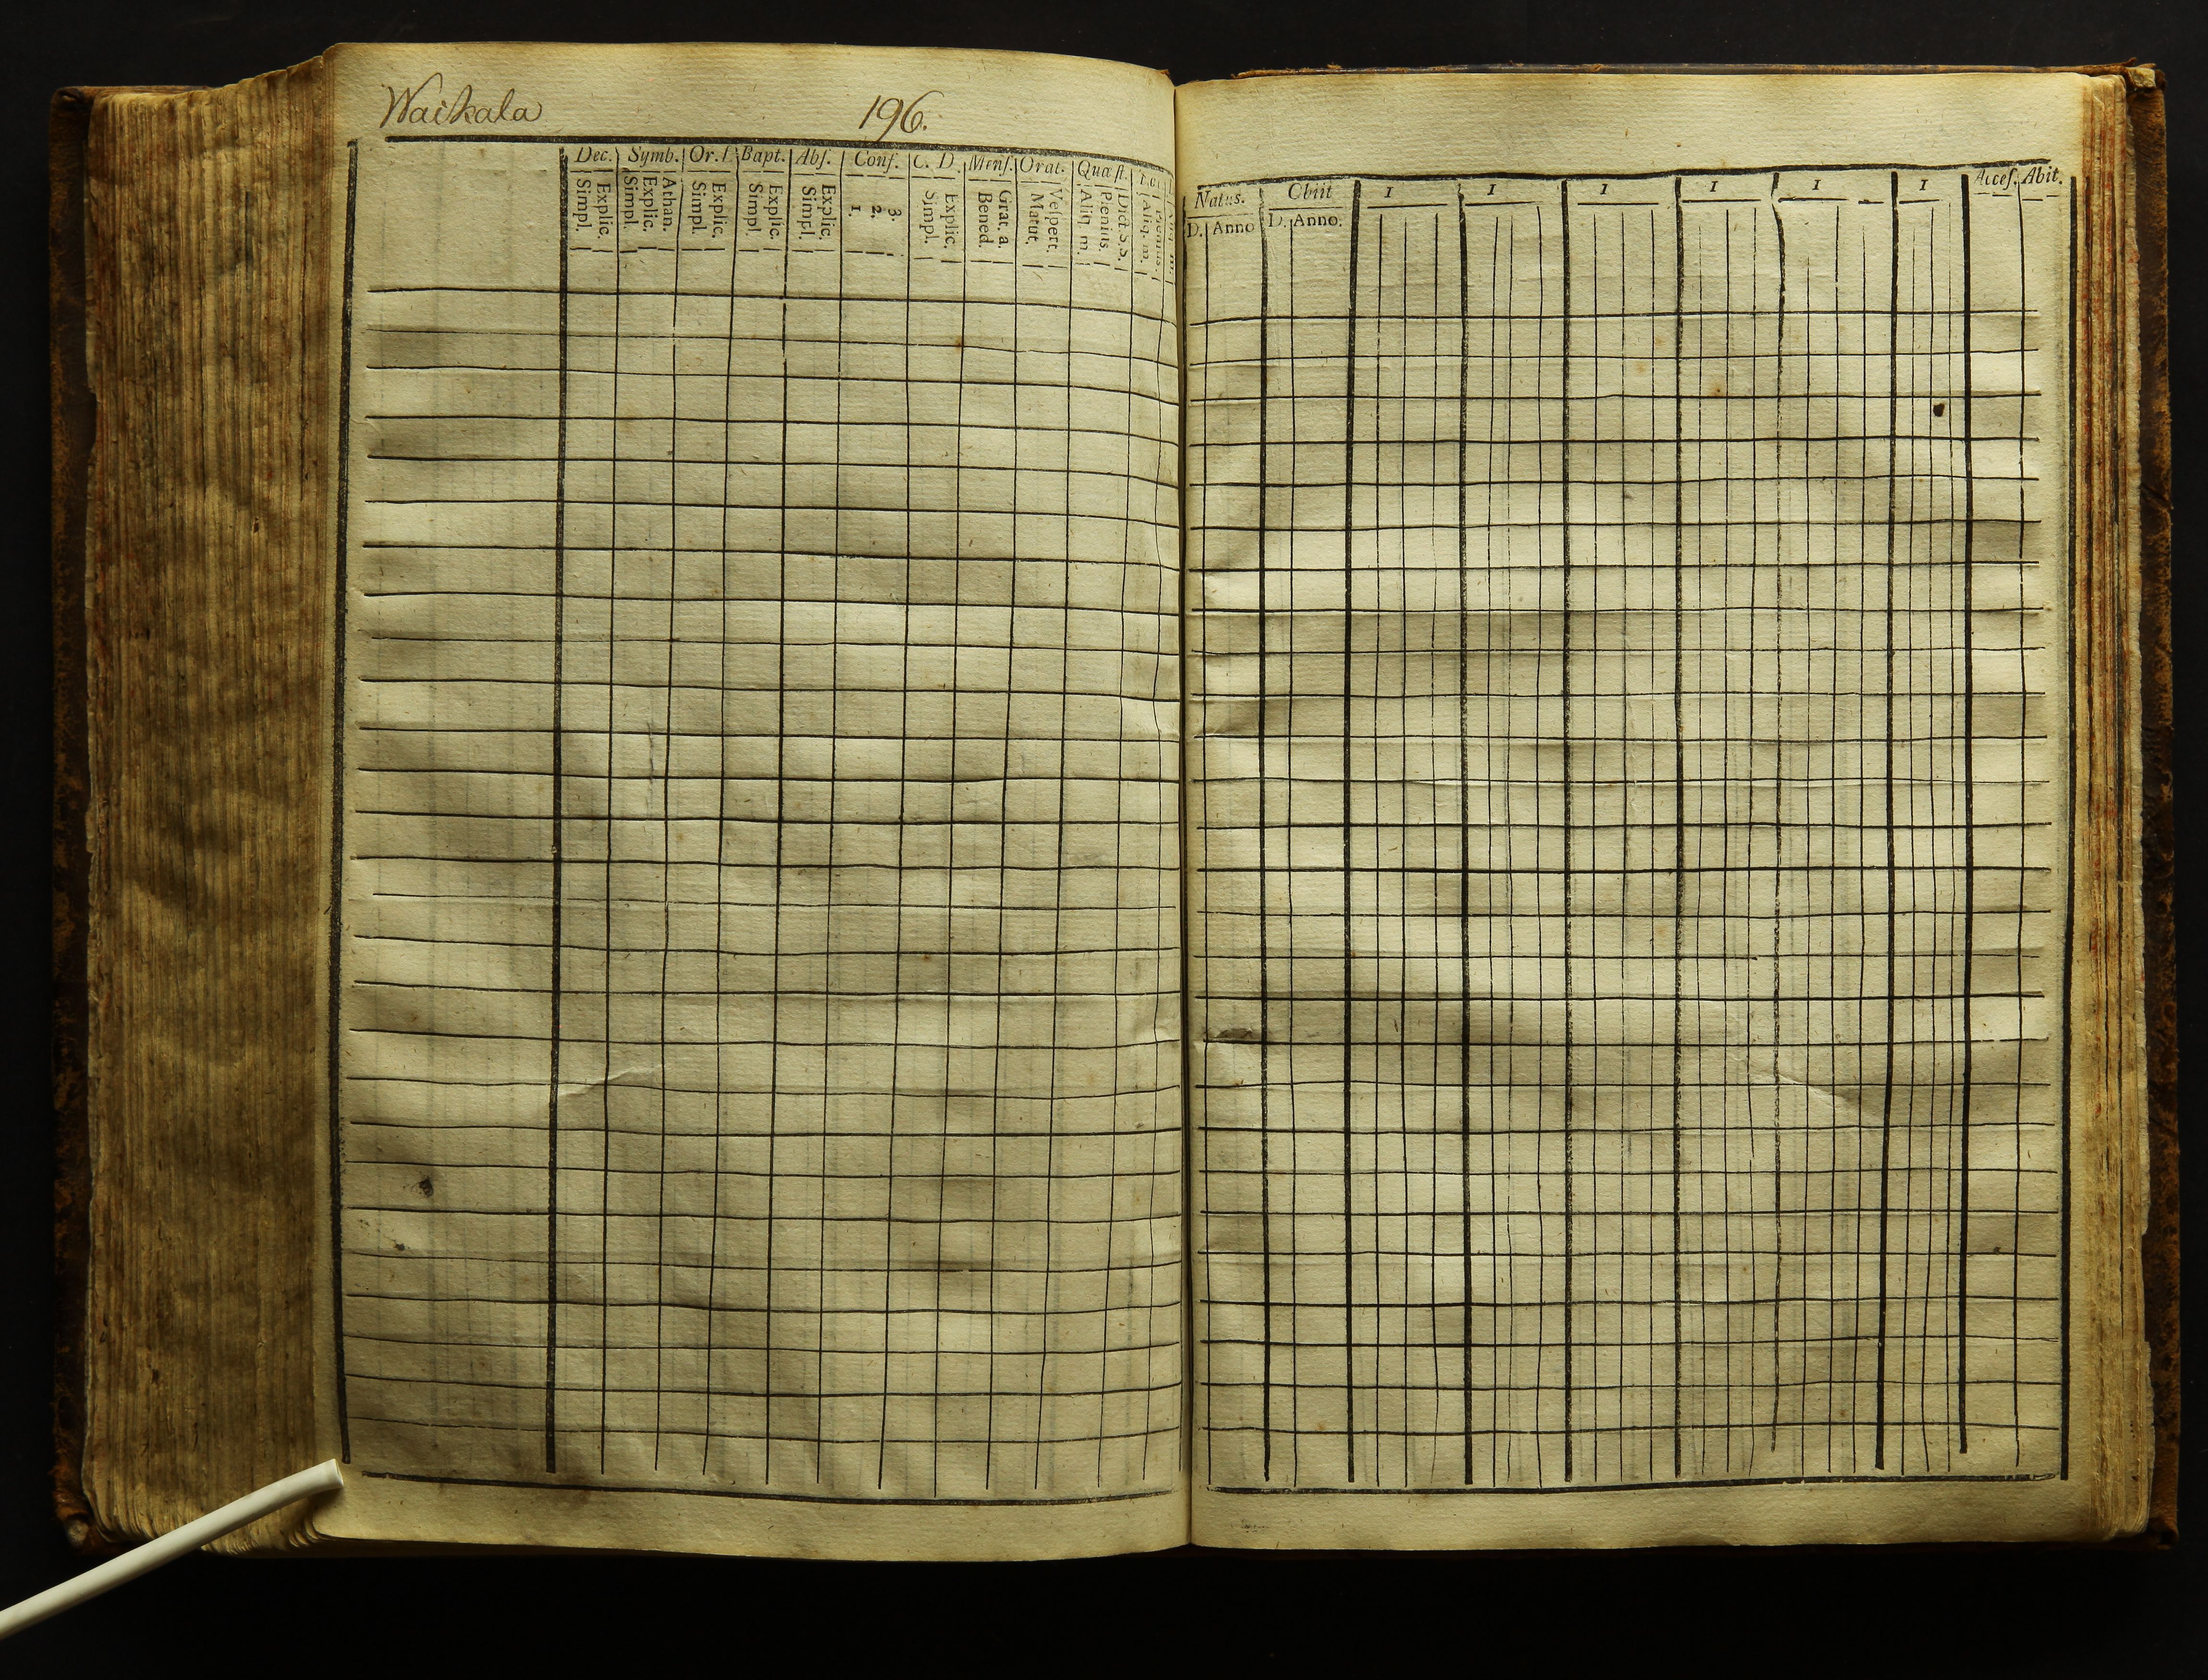 Waikala 196.
Dec. Symb. Or. Bapt. Abſ. Conf. C. D. Menſ. Orat. Quæſt.
Simpl. Explic. Simpl. Explic. Athan. Simpl. Explic. Simpl. Explic. Simpl. Explic. 1. 2. 3. Simpl. Explic. Bened. Grat. a. Matut. Veſpert. Aliq. m. Plenius. Dict. S.S. Aliq. m.
Natus. Obiit 1 1 1 1 1 1 Acceſ. Abit.
D. Anno D. Anno.